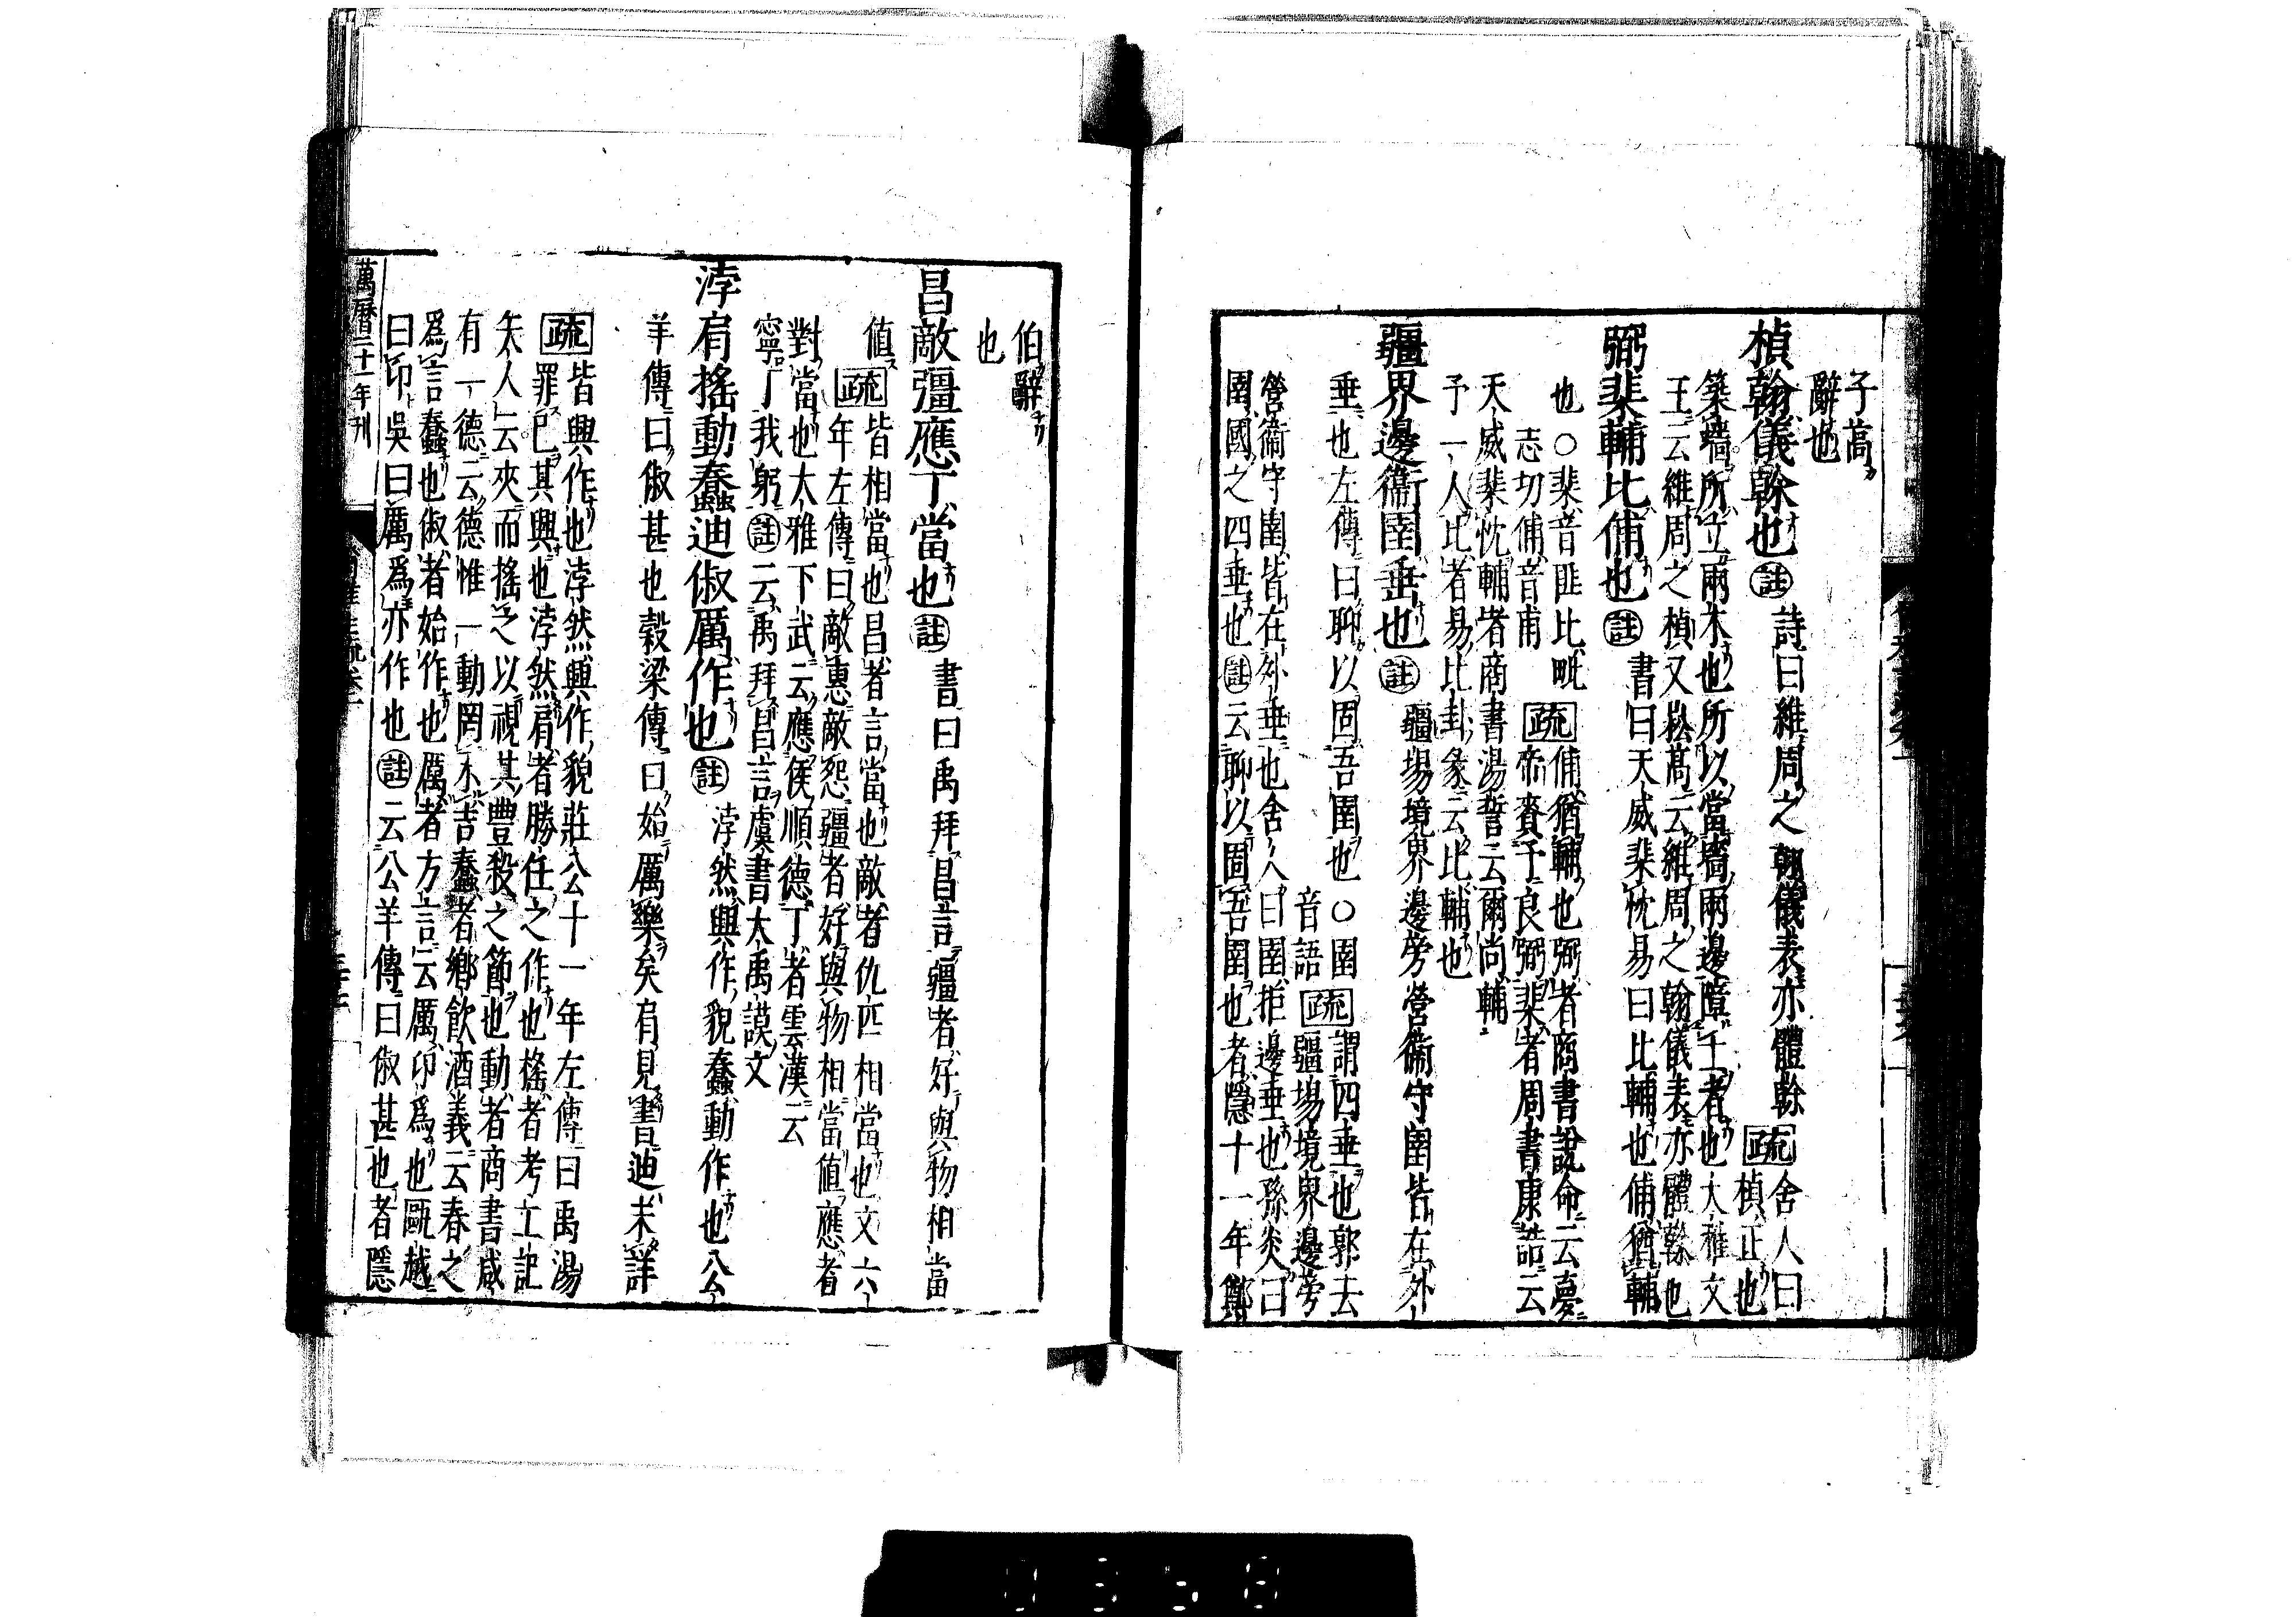 子高
辭也
楨翰儀榦也註詩曰維周之翰儀表亦體榦疏舍人曰
楨正也
築墻所立兩木也所以當墻兩邊障土者也大雅文
王云維周之楨又崧高云維周之翰儀表亦體榦也
弼棐輔比俌也註書曰天威棐忱易曰比輔也俌猶輔
也○棐音匪比毗
志切俌音甫疏俌猶輔也弼者商書說命云夢
帝賚予良弼棐者周書康誥云
天威棐忱輔者商書湯誓云爾尚輔
予一人比者易比卦彖云比輔也
疆界邊衞圉垂也註疆場境界邊旁營衞守圉皆在外
垂也左傳曰聊以固吾圉也○圉
音語疏謂四垂也郭去
疆場境界邊旁
營衞守圉皆在外垂也舍人曰圉拒邊垂也孫炎曰
圉國之四垂也註云聊以固吾圉也者隱十一年鄭
伯辭
也
昌敵彊應丁當也註書曰禹拜昌言彊者好與物相當
值疏皆相當也昌者言當也敵者仇匹相當也文六
年左傳曰敵惠敵怨彊者好與物相當值應者
對當也大雅下武云應侯順德丁者雲漢云
寧丁我躬註云禹拜昌言虞書大禹謨文
浡肩搖動蠢迪俶厲作也註浡然興作貌蠢動作也公
羊傳曰俶甚也穀梁傳曰始厲樂矣肩見書迪未詳
疏皆興作也浡然興作貌莊公十一年左傳曰禹湯
罪已其興也浡然肩者勝任之作也搖者考工記
矢人云夾而搖之以視其豐殺之節也動者商書咸
有一德云德惟一動罔不吉蠢者鄉飲酒義云春之
爲言蠢也俶者始作也厲者方言云厲卬爲也甌越
曰卬吳曰厲爲亦作也註云公羊傳曰俶甚也者隱
萬曆二十一年刊